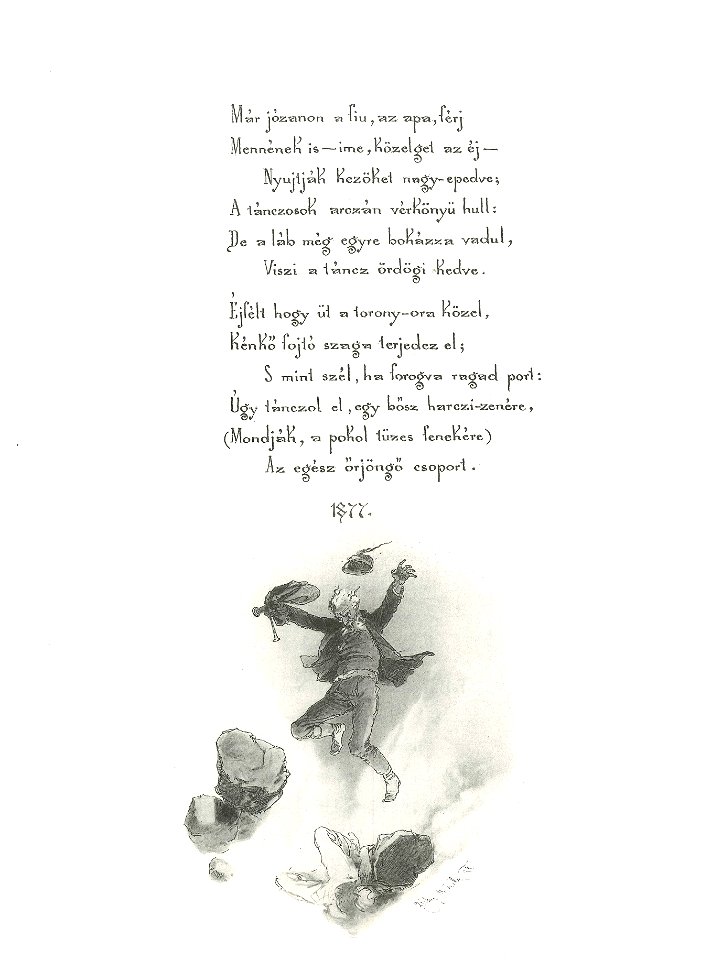 Már józanon a fiu, az apa, férj
Mennének is — ime, közelget az éj —
Nyujtják kezöket nagy-epedve;
A tánczosok arczán vérkönyü hull:
De a láb még egyre bokázza vadul,
Viszi a táncz ördögi kedve.
Éjfélt hogy üt a torony-ora közel,
Kénkő fojtó szaga terjedez el;
S mint szél, ha forogva ragad port:
Úgy tánczol el, egy bősz harczi-zenére,
(Mondják, a pokol tüzes fenekére)
Az egész őrjöngő csoport.
1877.